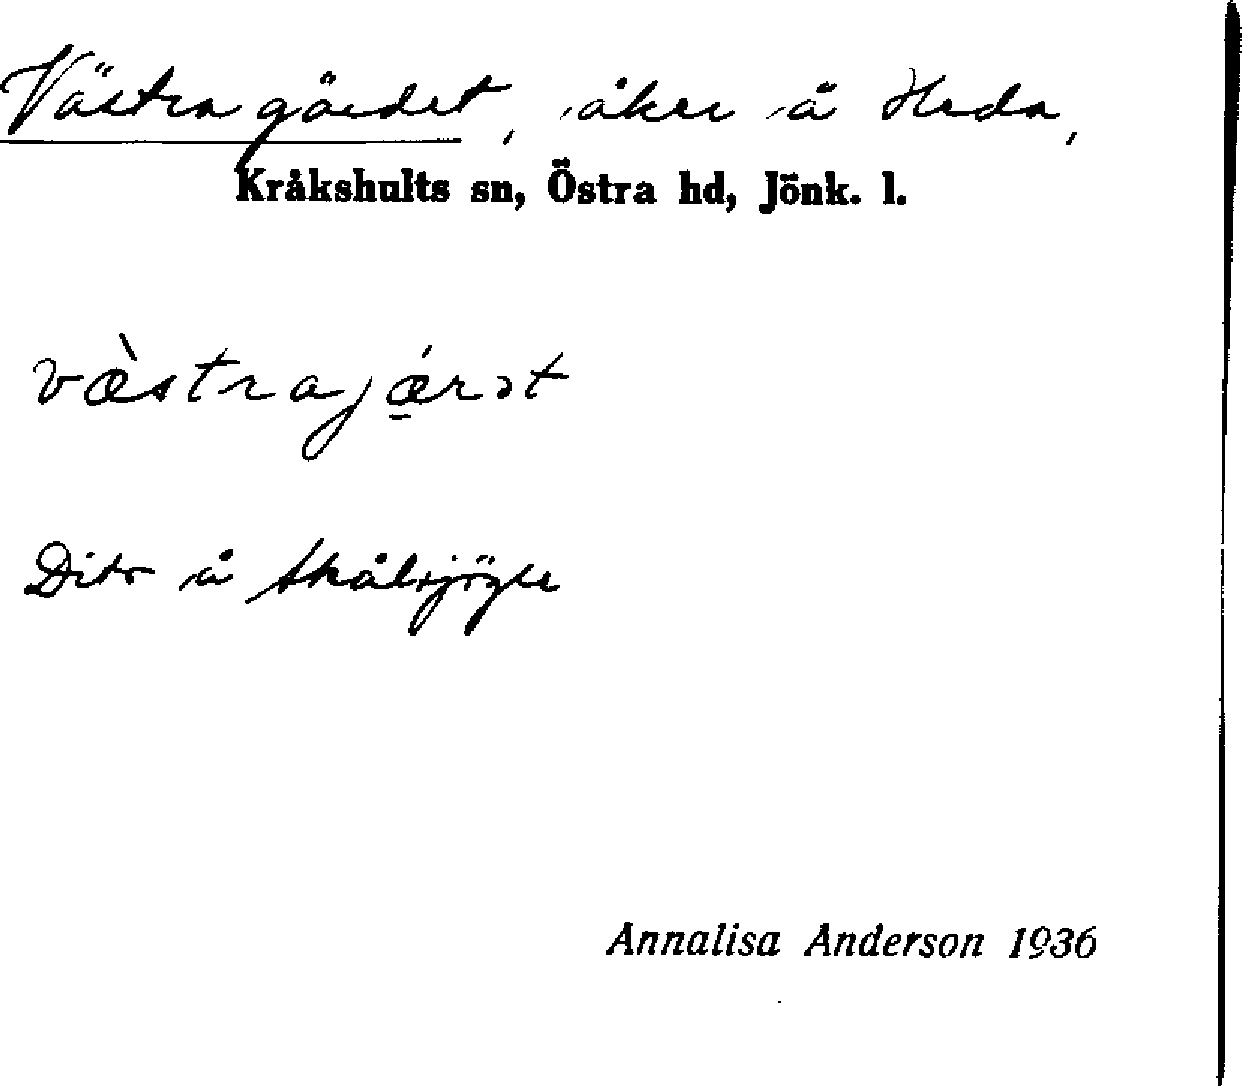 Västra gärdet, åker å Heda,
Kråkshults sn, Östra hd, Jönk. l.
væ̀strajǽ̠rət
Dito å
Annalisa Anderson 1936